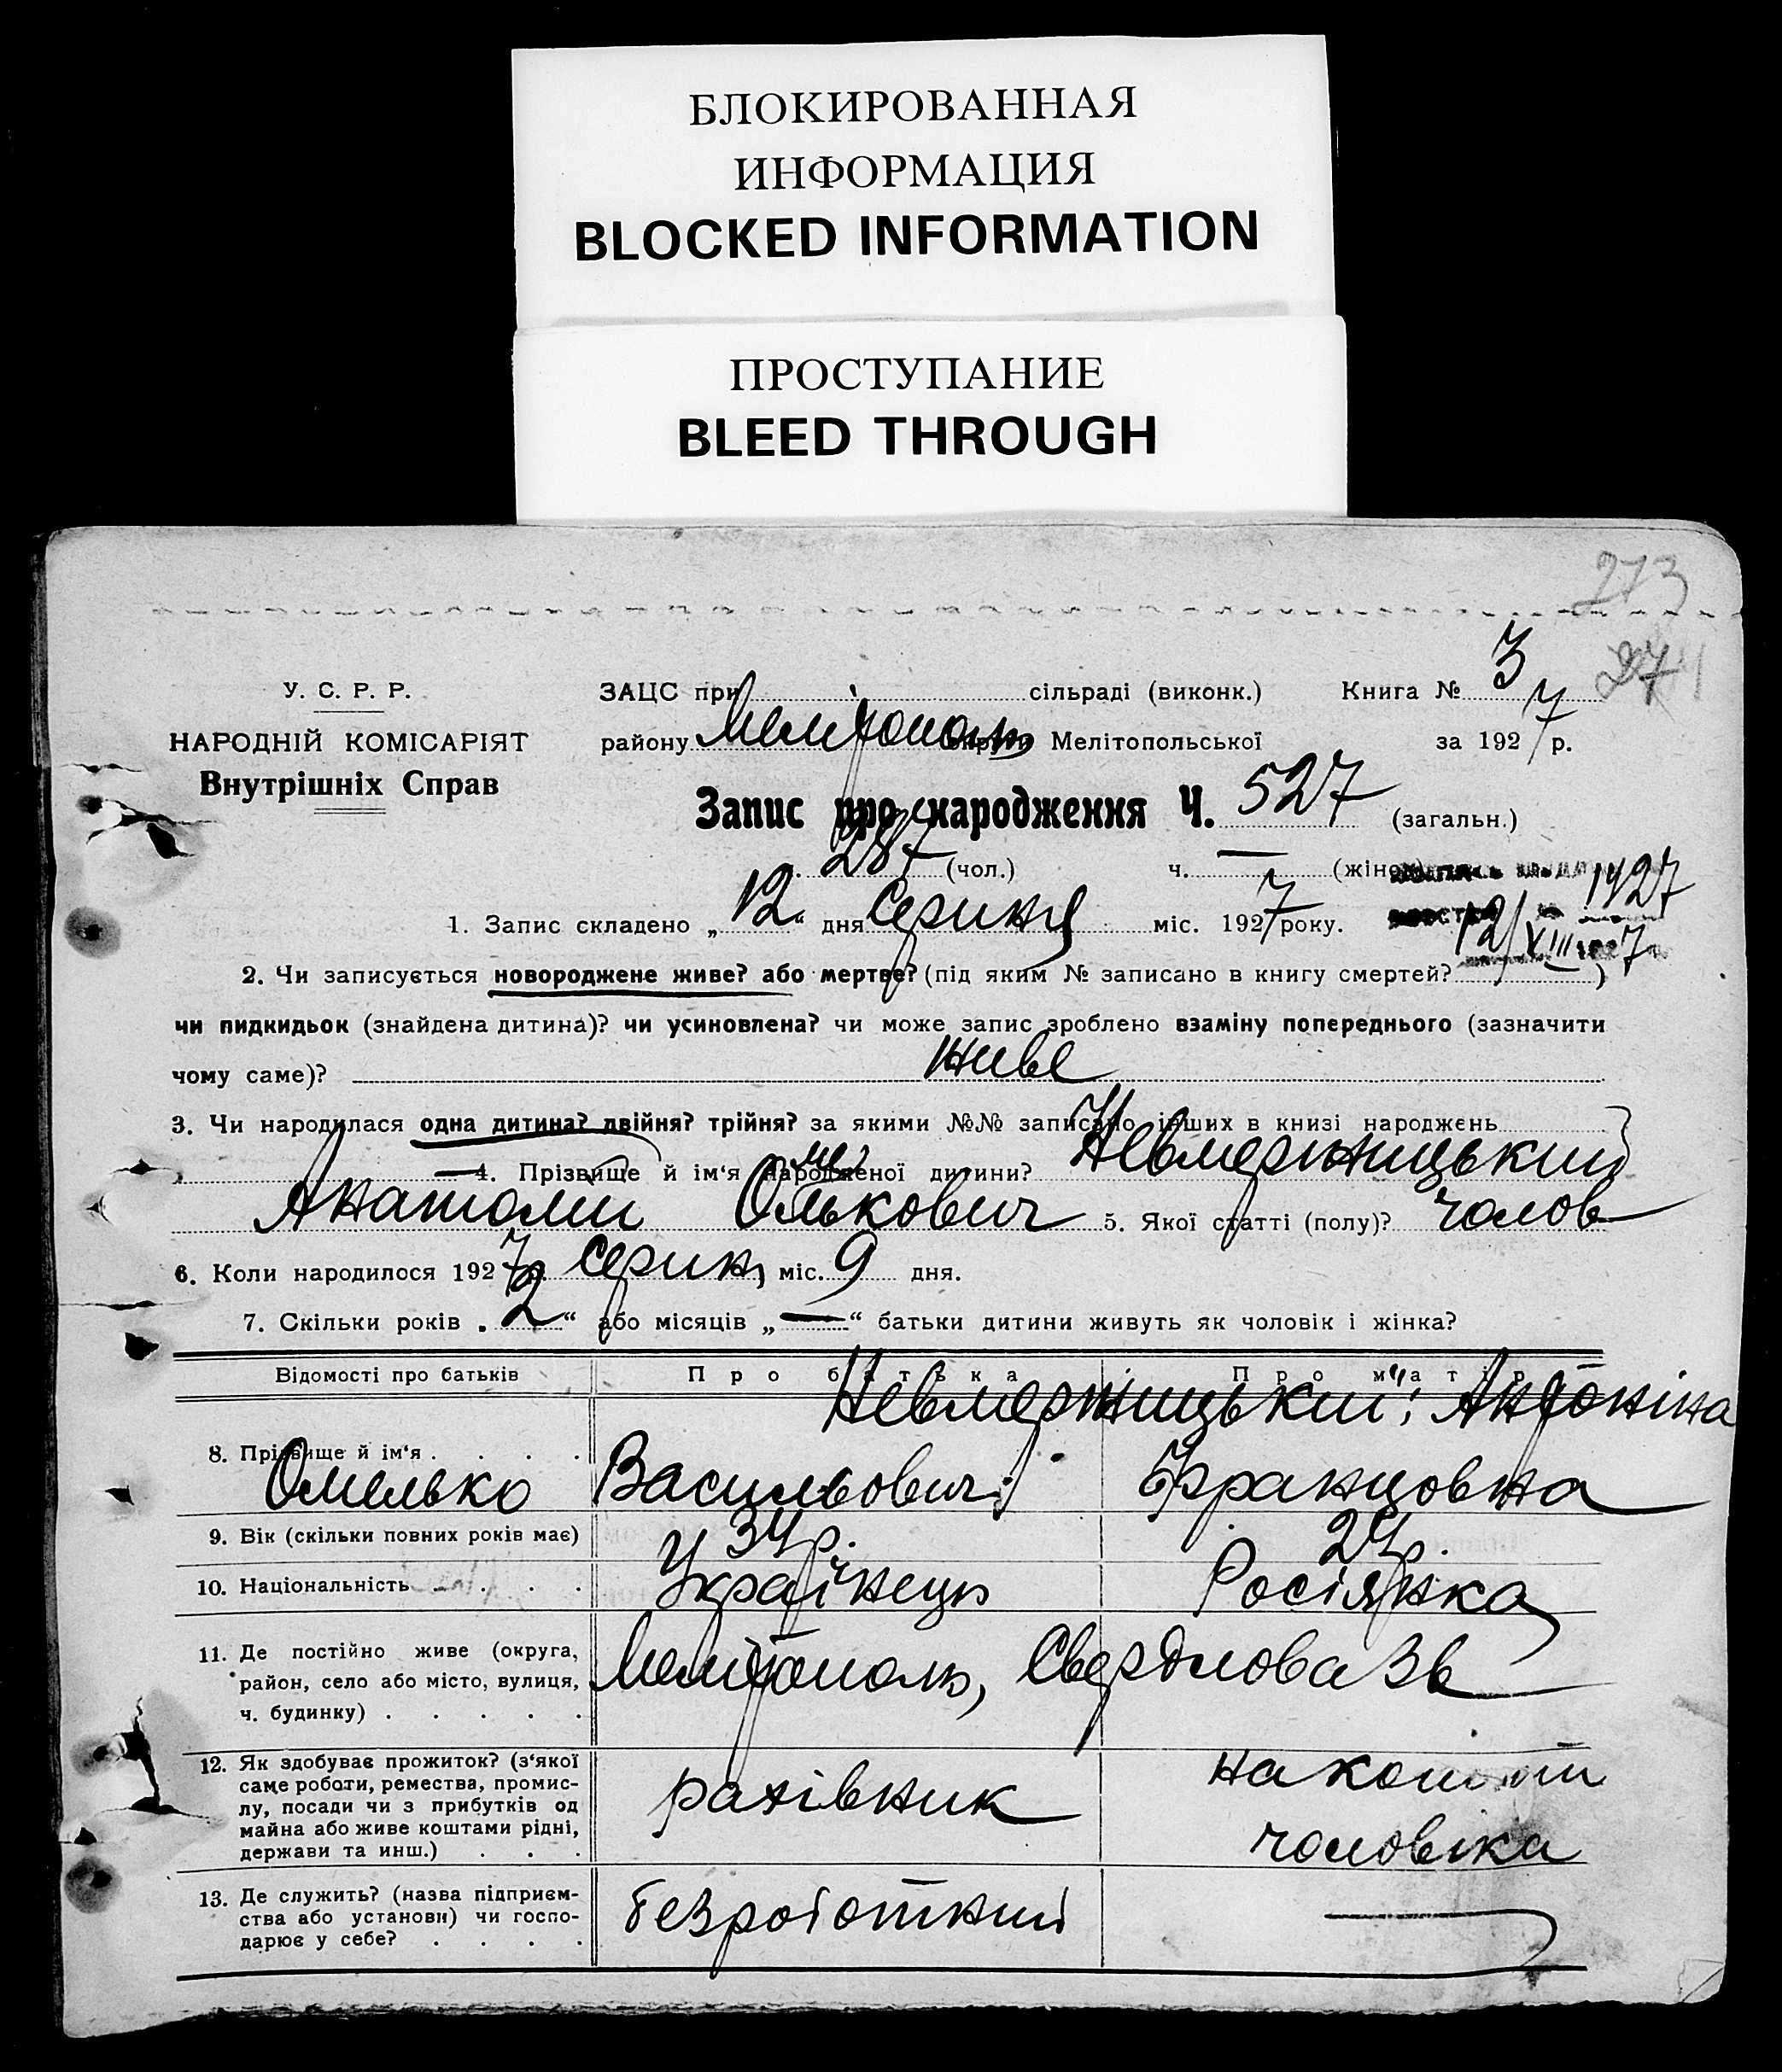 БЛОКИРОВАННАЯ
ИНФОРМАЦИЯ
BLOCKED INFORMATION
ПРОСТУПАНИЕ
BLEED THROUGH
273
У. С. Р. Р.
НАРОДНІЙ КОМІСАРІЯТ
Внутрішніх Справ
ЗАЦС при сільраді (виконк.) Книга № 3
району Мелітополь округи Мелітопольської за 1927 р.
Запис про народження Ч. 527 (загальн.)
287 (чол.) ч. — (жіноч.)
1427
1. Запис складено „12“ дня Серпня міс. 1927 року.
12/VIII 7
2. Чи записується новороджене живе? або мертве? (під яким № записано в книгу смертей? )
чи пидкидьок (знайдена дитина)? чи усиновлена? чи може запис зроблено взаміну попереднього (зазначити
чому саме)? живе
3. Чи народилася одна дитина? двійня? трійня? за якими №№ записано інших в книзі народжень
— 4. Прізвище й ім‘я народженої дитини? Невмержицький
Анатолий Омелькович 5. Якої статті (полу)? чолов
6. Коли народилося 1927 р. Серпн, міс. 9 дня.
7. Скільки років „2“ або місяців „—“ батьки дитини живуть як чоловік і жінка?
Відомості про батьків Про батька Про матір
Невмержицький; Антоніна
8. Прізвище й ім‘я . . . .
Омелько Васильович Францовна
9. Вік (скільки повних років має) 34р. 24р.
10. Національність . . . . Українець Росіянка
11. Де постійно живе (округа,
район, село або місто, вулиця,
ч. будинку) . . . . .
Мелітополь, Свердлова
12. Як здобуває прожиток? (з‘якої
саме роботи, ремества, промис-
лу, посади чи з прибутків од
майна або живе коштами рідні,
держави та инш.) . . .
рахівник
на кошти
чоловіка
13. Де служить? (назва підприєм-
ства або установи) чи госпо-
дарює у себе? . . . .
безробітний —